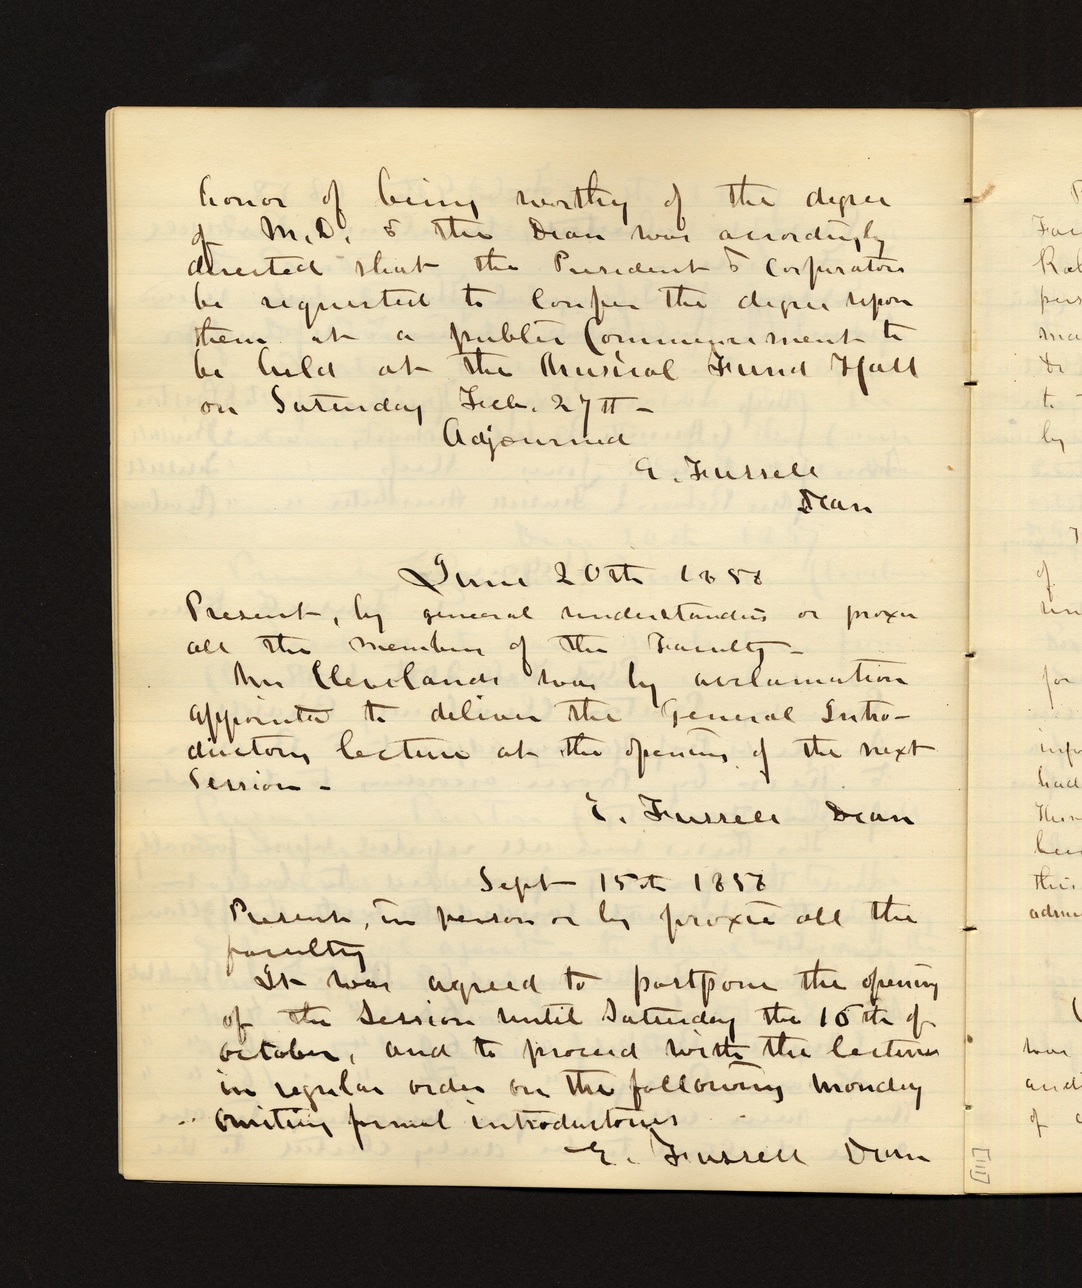 honor of being worthy of the degree
of M.D. & the Dean was accordingly
directed that the President & Corporators
be requested to confer the degree upon
them at a public Commencement to
be held at the Musical Fund Hall
on Saturday Feb. 27th —
Adjourned
E. Fussell
Dean
June 20th 1858
Present, by general understanding or proxie
all the members of the Faculty —
Mr Cleveland was by acclamation
appointed to deliver the General Intro-
ductory lecture at the opening of the next
Session —
E. Fussell Dean
Sept 15th 1858
Present, in person or by proxie all the
faculty
It was agreed to postpone the opening
of the Session until Saturday the 16th of
October, and to proceed with the lectures
in regular order on the following Monday
omitting formal introductories
E. Fussell Dean